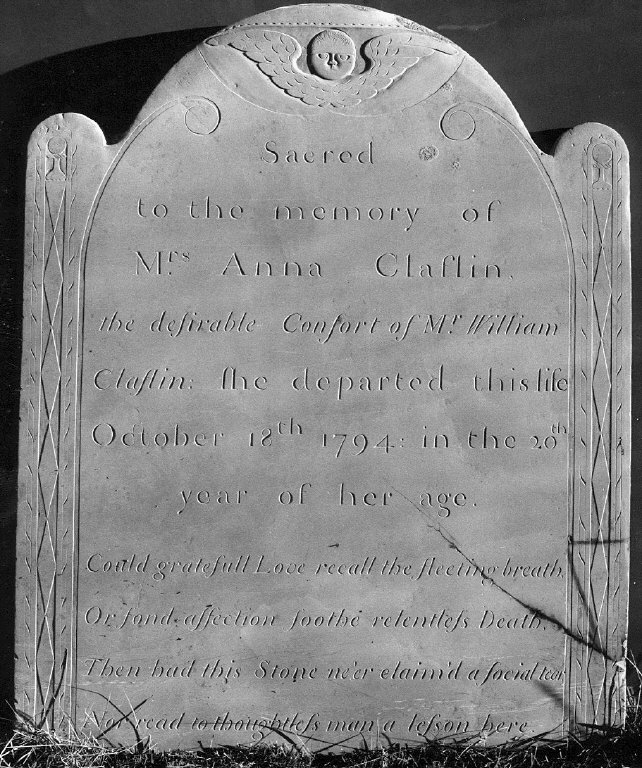 Sacred
to the memory of
Mrs Anna Claflin,
the deſirable Conſort of Mr William
Claflin: ſhe departed this life
October 18th 1794: in the 20th
year of her age.
Could gratefull Love recall the fleeting breath,
Or fond affection ſoothe relentleſs Death,
Then had this Stone ne'er claim'd a ſocial tear
Nor read to thoughtleſs man a leſson here